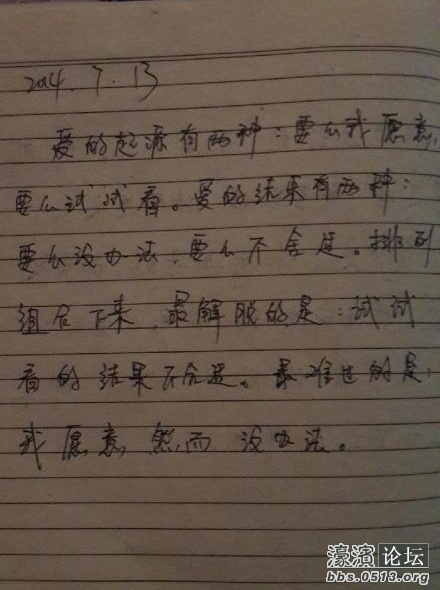 2014.7.13
爱的起源有两种：要么我愿意，
要么试试看。爱的结果有两种：
要么没办法，要么不合适。排列
组合下来，最解脱的是：试试
看的结果不合适。最难过的是：
我愿意然而没办法。
濠滨论坛
bbs.0513.org